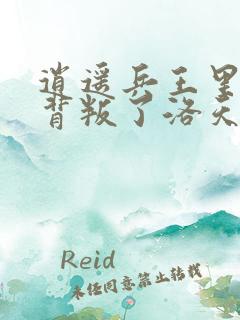 逍遥兵王里
背叛了洛天
Reid
未经同意禁止转载